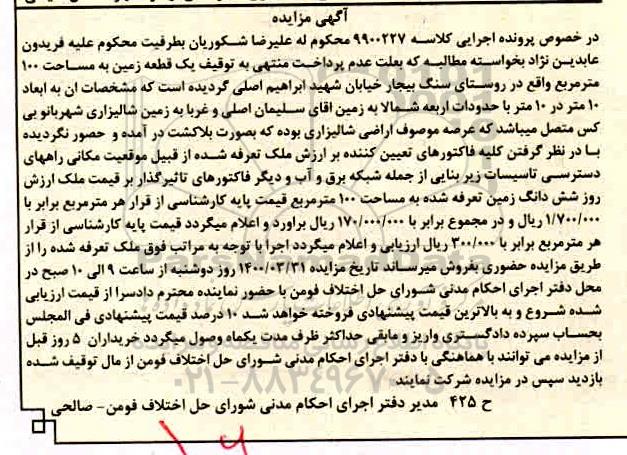 آگهی مزایده
در خصوص پرونده اجرایی کلاسه ۹۹۰۰۲۲۷ محکوم له علیرضا شکوریان بطرفیت محکوم علیه فریدون
عابدین نژاد بخواسته مطالبه که بعلت عدم پرداخت منتهی به توقیف یک قطعه زمین به مساحت ۱۰۰
مترمربع واقع در روستای سنگ بیجار خیابان شهید ابراهیم اصلی گردیده است که مشخصات ان به ابعاد
۱۰ متر در ۱۰ متر با حدودات اربعه شمالا به زمین اقای سلیمان اصلی و غربا به زمین شالیزاری شهربانو بی
کس متصل میباشد که عرصه موصوف اراضی شالیزاری بوده که بصورت بلاکشت در آمده و حصور نگردیده
با در نظر گرفتن کلیه فاکتورهای تعیین کننده بر ارزش ملک تعرفه شده از قبیل موقعیت مکانی راههای
دسترسی تاسیسات زیر بنایی از جمله شبکه برق و آب و دیگر فاکتورهای تاثیرگذار بر قیمت ملک ارزش
روز شش دانگ زمین تعرفه شده به مساحت ۱۰۰ مترمربع قیمت پایه کارشناسی از قرار هر مترمربع برابر با
۱/۷۰۰/۰۰۰ ریال و در مجموع برابر با ۱۷۰/۰۰۰/۰۰۰ ریال براورد و اعلام میگردد قیمت پایه کارشناسی از قرار
هر مترمربع برابر با ۳۰۰/۰۰۰ ریال ارزیابی و اعلام میگردد اجرا با توجه به مراتب فوق ملک تعرفه شده را از
طریق مزایده حضوری بفروش میرساند تاریخ مزایده ۱۴۰۰/۰۳/۳۱ روز دوشنبه از ساعت ۹ الی ۱۰ صبح در
محل دفتر اجرای احکام مدنی شورای حل اختلاف فومن با حضور نماینده محترم دادسرا از قیمت ارزیابی
شده شروع و به بالاترین قیمت پیشنهادی فروخته خواهد شد ۱۰ درصد قیمت پیشنهادی فی المجلس
بحساب سپرده دادگستری واریز و مابقی حداکثر ظرف مدت یکماه وصول میگردد خریداران ۵ روز قبل
از مزایده می توانند با هماهنگی با دفتر اجرای احکام مدنی شورای حل اختلاف فومن از مال توقیف شده
بازدید سپس در مزایده شرکت نمایند
ح ۴۲۵ مدیر دفتر اجرای احکام مدنی شورای حل اختلاف فومن- صالحی
ParsNamadData
۰۲۱-۸۸۳۴۹۶۷۰-۵